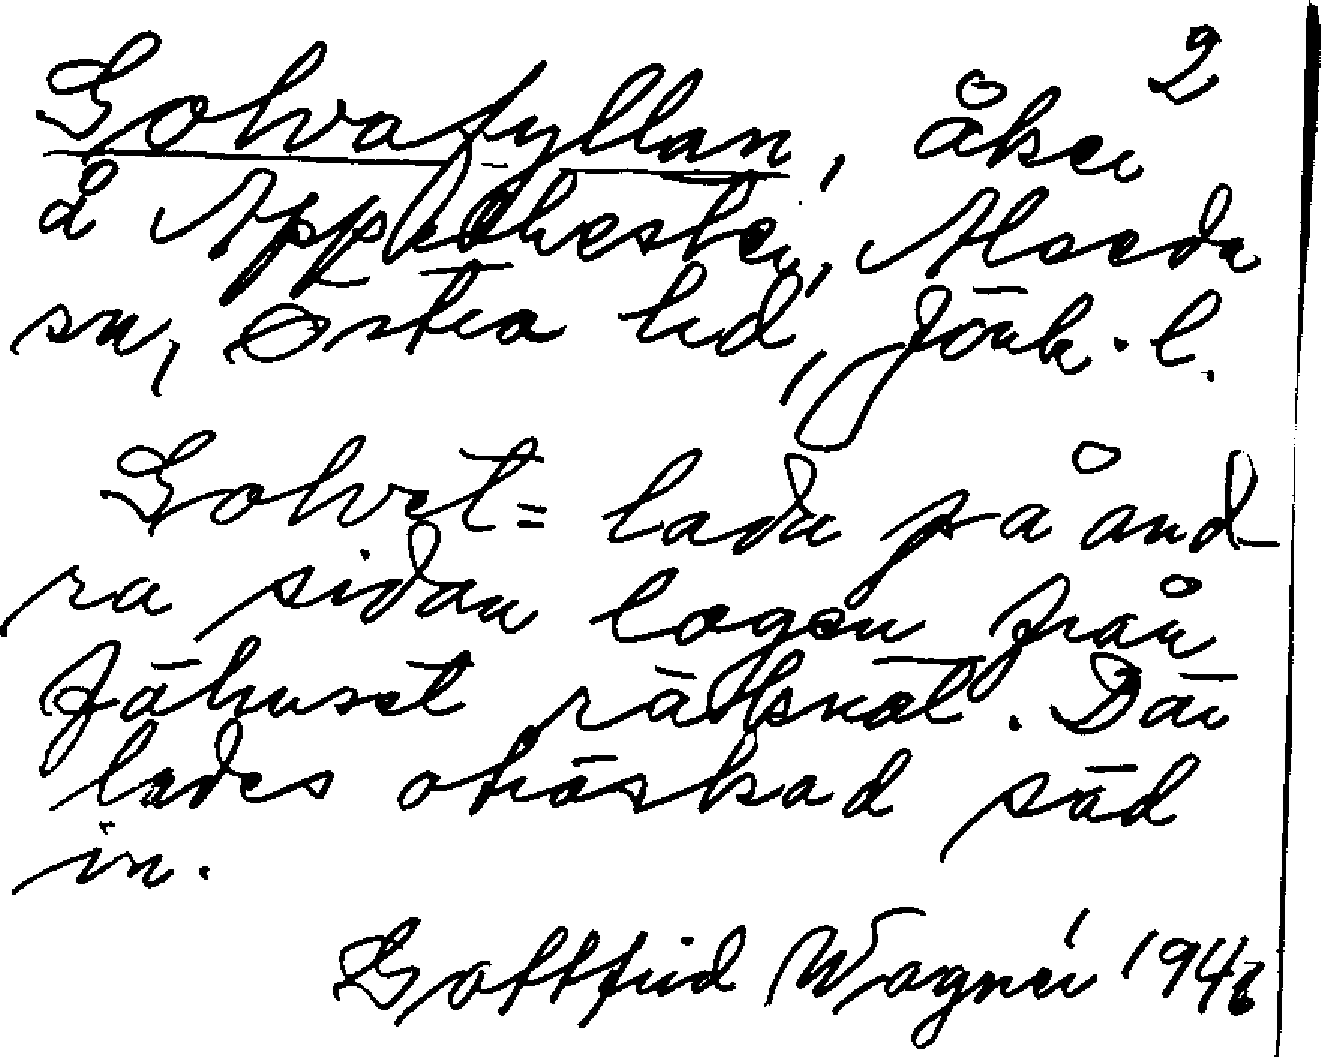 2
Golvafyllan, åker
å Äpplekvesten, Alseda
sn, Östra hd, Jönk. l.
Golvet = lada på and-
ra sidan logen från
fähuset räknat. Där
lades otröskad säd
in.
Gottfrid Wagnér 194